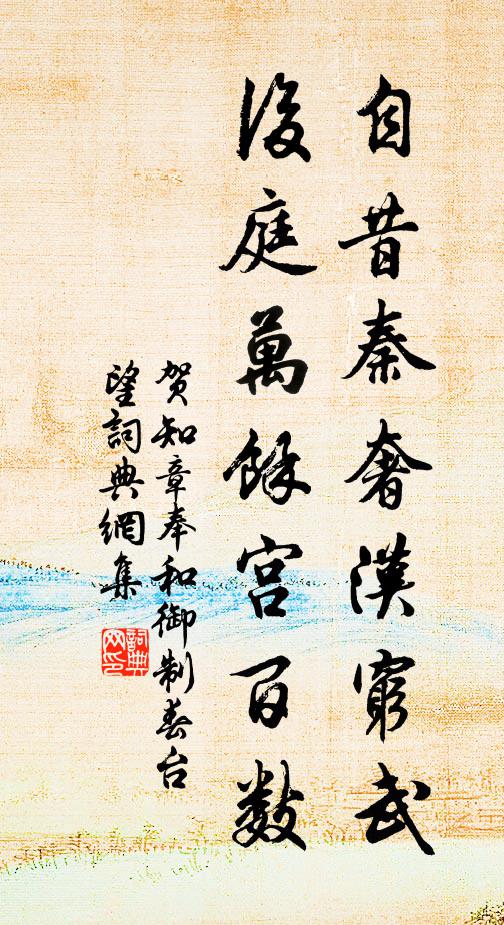 自昔秦奢漢窮武
後庭萬餘宮百數
贺知章奉和御制春台
望詞典網集
詞典
网印